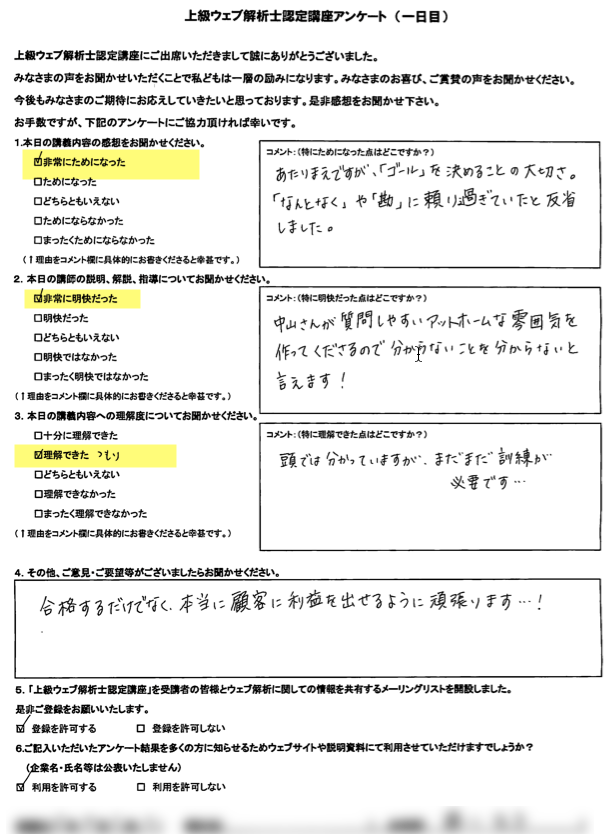 上級ウェブ解析士認定講座アンケート（一日目）
上級ウェブ解析士認定講座にご出席いただきまして誠にありがとうございました。
みなさまの声をお聞かせいただくことで私どもは一層の励みになります。みなさまのお喜び、ご賞賛の声をお聞かせください。
今後もみなさまのご期待にお応えしていきたいと思っております。是非感想をお聞かせ下さい。
お手数ですが、下記のアンケートにご協力頂ければ幸いです。
1.本日の講義内容の感想をお聞かせください。
☑非常にためになった
□ためになった
□どちらともいえない
□ためにならなかった
□まったくためにならなかった
（↑理由をコメント欄に具体的にお書きくださると幸甚です。）
コメント:（特にためになった点はどこですか？）
あたりまえですが、「ゴール」を決めることの大切さ。
「なんとなく」や「勘」に頼り過ぎていたと反省
しました。
2. 本日の講師の説明、解説、指導についてお聞かせください。
☑非常に明快だった
□明快だった
□どちらともいえない
□明快ではなかった
□まったく明快ではなかった
（↑理由をコメント欄に具体的にお書きくださると幸甚です。）
コメント:（特に明快だった点はどこですか？）
中山さんが質問しやすいアットホームな雰囲気を
作ってくださるので分からないことを分からないと
言えます！
3. 本日の講義内容への理解度についてお聞かせください。
□十分に理解できた
☑理解できた つもり
□どちらともいえない
□理解できなかった
□まったく理解できなかった
（↑理由をコメント欄に具体的にお書きくださると幸甚です。）
コメント:（特に理解できた点はどこですか？）
頭では分かっていますが、まだまだ訓練が
必要です…
4. その他、ご意見・ご要望等がございましたらお聞かせください。
合格するだけでなく、本当に顧客に利益を出せるように頑張ります…！
5. 「上級ウェブ解析士認定講座」を受講者の皆様とウェブ解析に関しての情報を共有するメーリングリストを開設しました。
是非ご登録をお願いいたします。
☑ 登録を許可する □ 登録を許可しない
6.ご記入いただいたアンケート結果を多くの方に知らせるためウェブサイトや説明資料にて利用させていただけますでしょうか？
（企業名・氏名等は公表いたしません）
☑ 利用を許可する □ 利用を許可しない